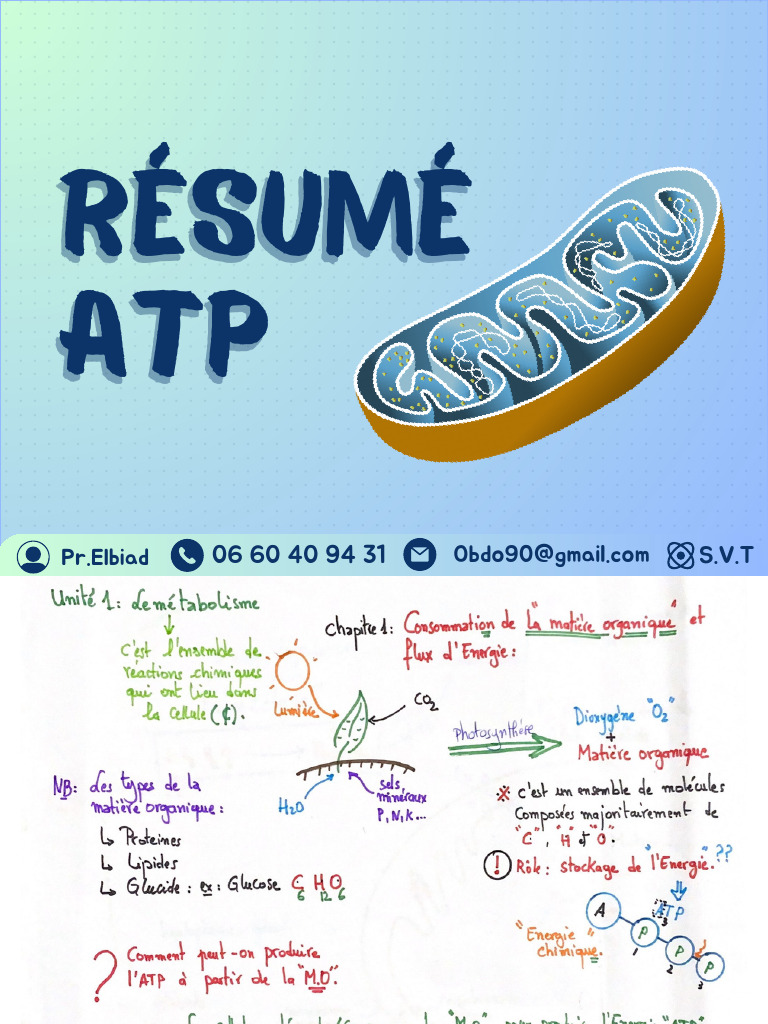 RÉSUMÉ
ATP
Pr.Elbiad 06 60 40 94 31 0bdo90@gmail.com S.V.T
Unité 1: Le métabolisme
c'est l'ensemble de
réactions chimiques
qui ont lieu dans
la cellule (¢).
chapitre 1: Consommation de "la matière organique" et
flux d'Energie :
Lumière
CO2
H2O
sels
minéraux
P, N, K...
Photosynthèse
Dioxygène "O2"
+
Matière organique
※ c'est un ensemble de molécules
Composées majoritairement de
"C", "H" et "O".
! Rôle : stockage de "l'Energie". ??
ATP
3
A
P
P
P
1
2
3
"Energie
chimique.
NB: Les types de la
matière organique :
↳ Proteines
↳ Lipides
↳ Glucide : ex : Glucose C6 H12 O6
? Comment peut-on produire
l'ATP à partir de la "M.O".